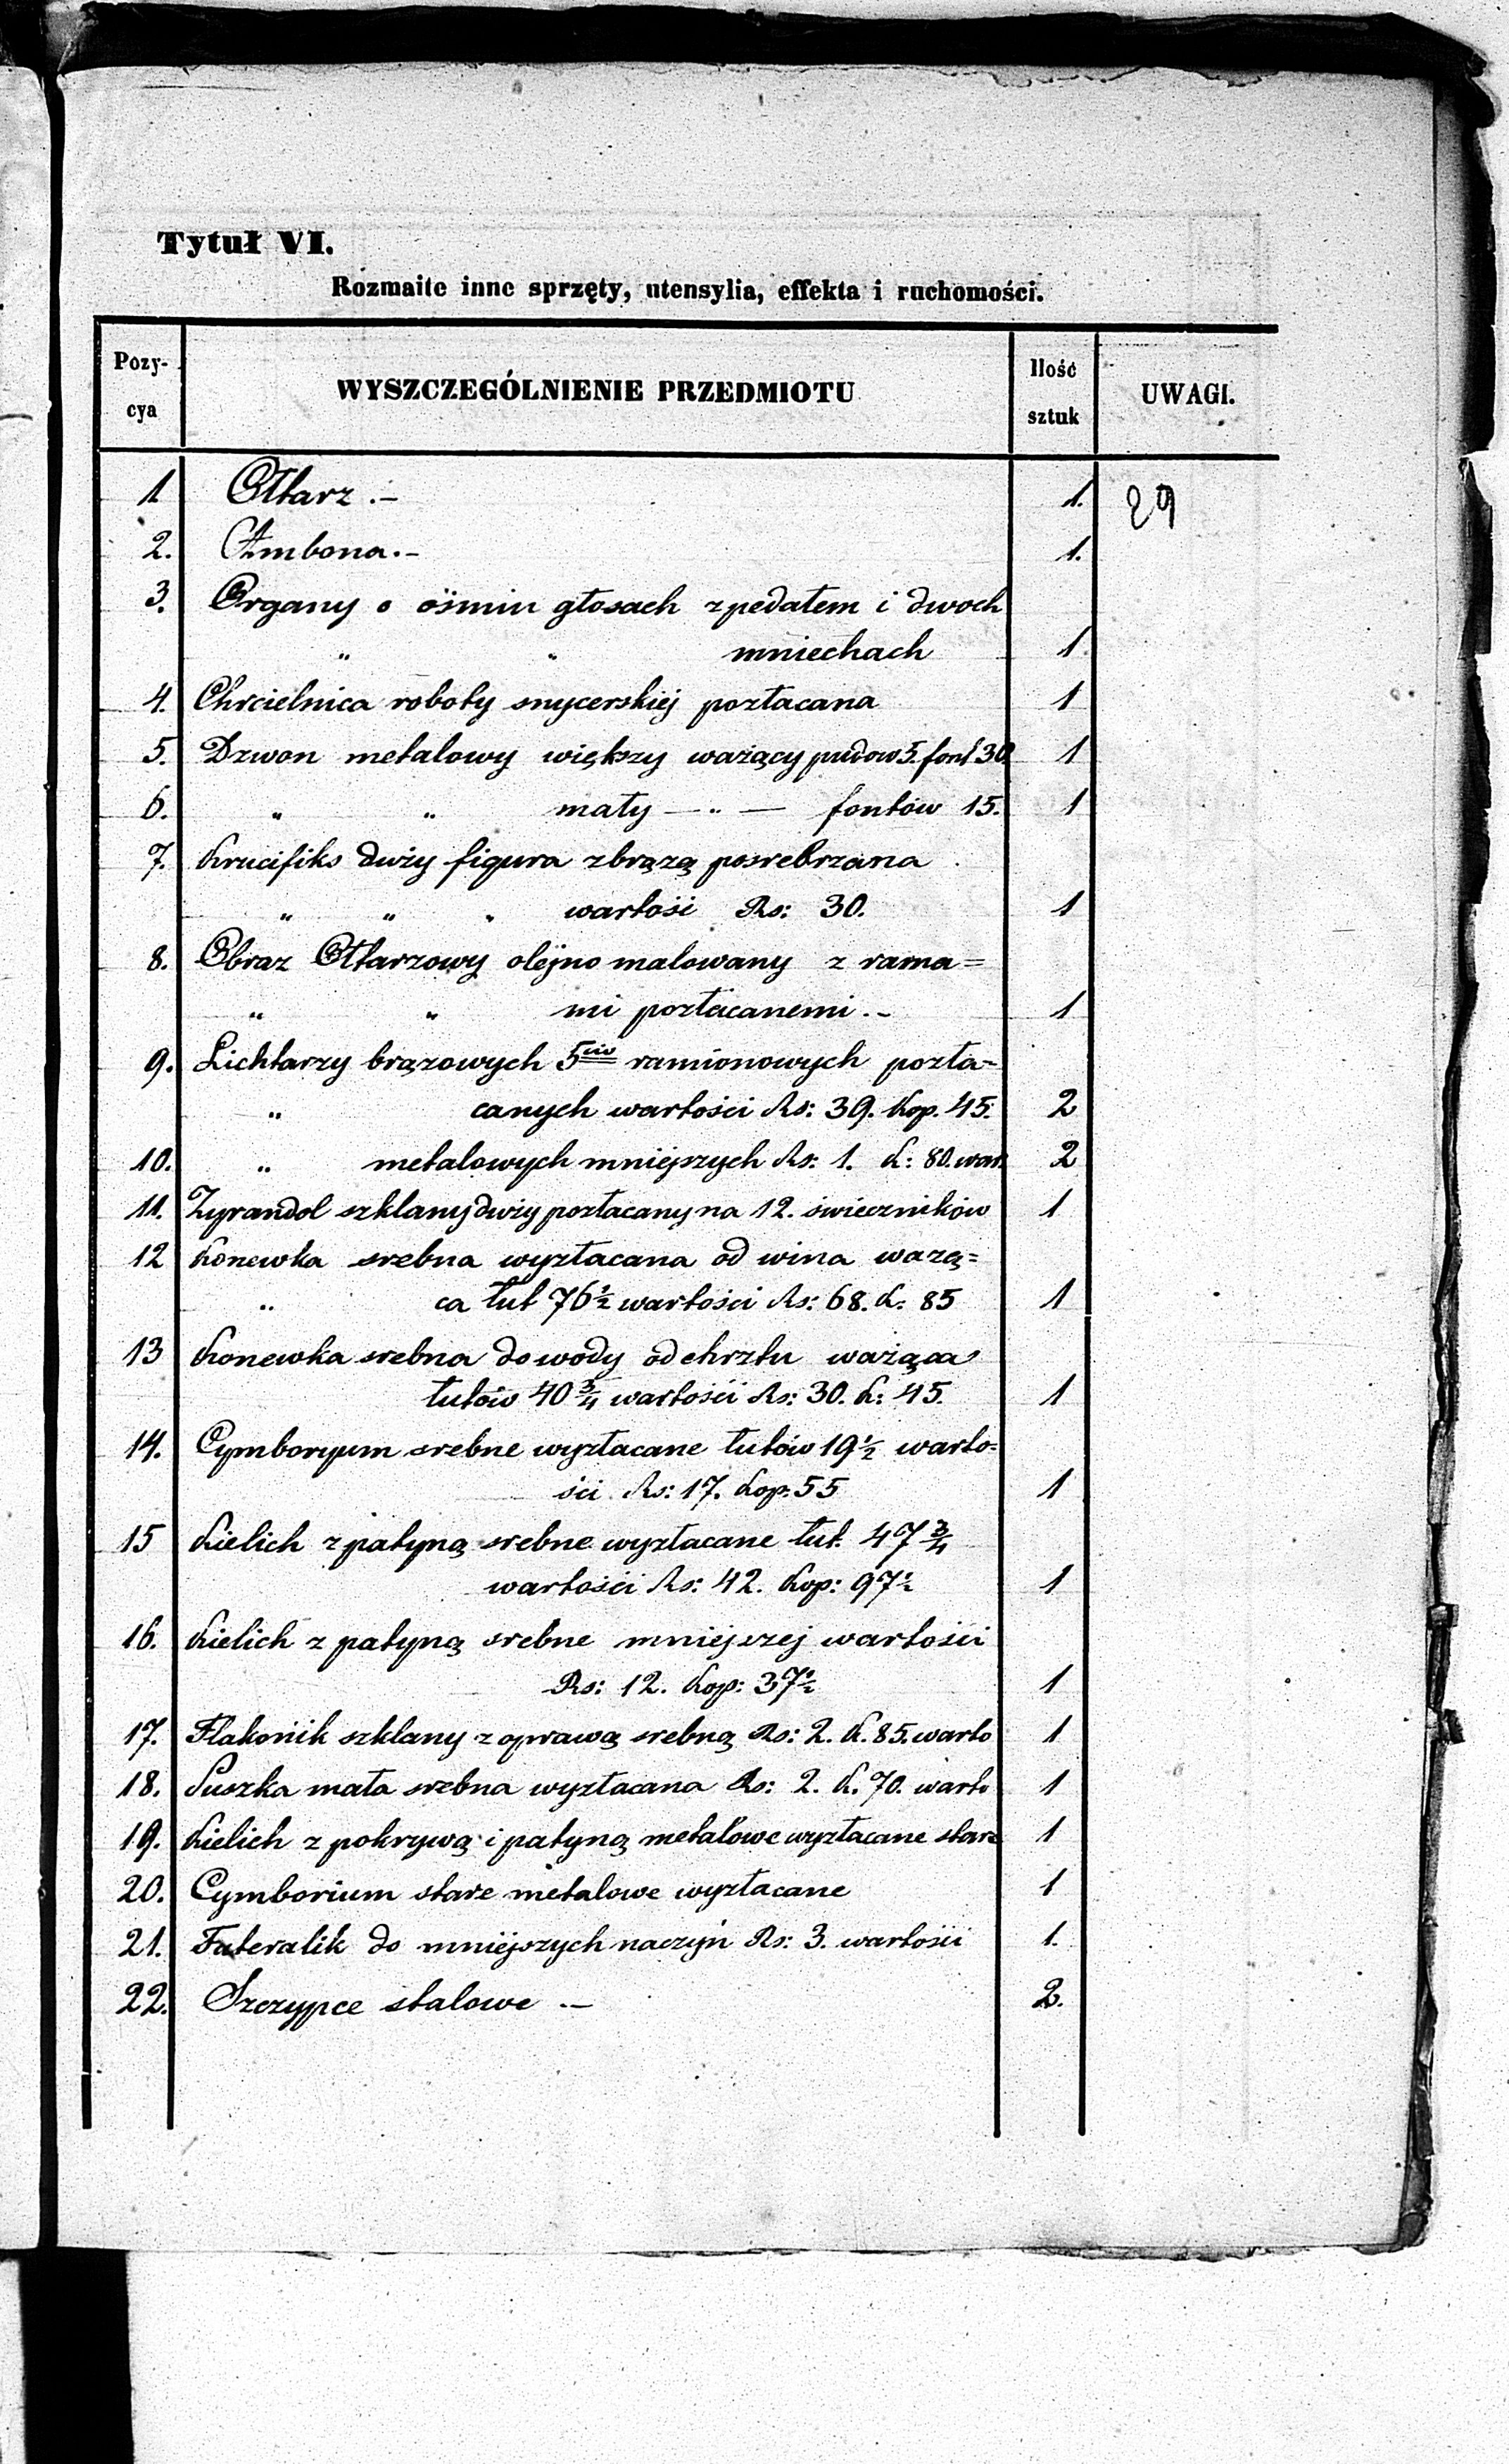 Tytuł VI.
Rozmaite inne sprzęty, utensylia, effekta i ruchomości.
Pozy-
cya
WYSZCZEGÓLNIENIE PRZEDMIOTU
Ilość
sztuk
UWAGI.
1 Ołtarz .– 1. 29
2. Ambona.– 1.
3. Organy o ośmiu głosach z pedałem i dwoch
" " mniechach 1
4. Chrcielnica roboty snycerskiej pozłacana 1
5. Dzwon metalowy większy ważący pudow 5. font 30 1
6. " " mały — " — fontów 15. 1
7. Krucifiks duży figura z brązą posrebrzana
" " " wartośi Rs: 30. 1
8. Obraz Ołtarzowy olejno malowany z rama=
" " mi pozłacanemi .– 1
9. Lichtarzy brązowych 5cio ramionowych pozła-
" canych wartości Rs: 39. Kop. 45. 2
10. " metalowych mniejszych Rs: 1. K: 80. war. 2
11. Zyrandol szklany duży pozłacany na 12. świeczników 1
12 Konewka srebna wyzłacana od wina wazą=
" ca łut 76½ wartości Rs: 68. K: 85 1
13 Konewka srebna do wody od chrztu ważąca
łutów 40¾ wartości Rs: 30. K: 45. 1
14. Cymboryum srebne wyzłacane łutów 19½ warto-
ści Rs: 17. Kop: 55 1
15 Kielich z patyną srebne wyzłacane łut. 47¾
wartości Rs: 42. Kop: 97½ 1
16. Kielich z patyną srebne mniejszej wartości
Rs: 12. Kop: 37½ 1
17. Flakonik szklany z oprawą srebną Rs: 2. K. 85. warto 1
18. Puszka mała srebna wyzłacana Rs: 2. K. 70. warto 1
19. Kielich z pokrywą i patyną metalowe wyzłacane stare 1
20. Cymborium stare metalowe wyzłacane 1
21. Futeralik do mniejszych naczyń Rs: 3. wartości 1.
22. Szczypce stalowe .– 2.